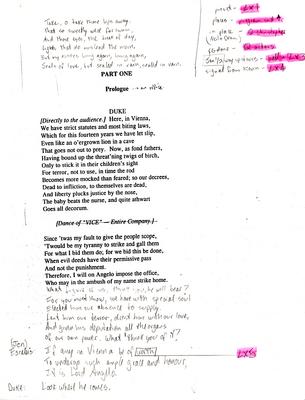 Take, o take those lips away,
That so sweetly were forsworn,
And those eyes, the break of day,
Lights that do mislead the morn,
But my kisses bring again, bring again,
Seals of love, but sealed in vain, sealed in vain.
PART ONE
Prologue
DUKE
[Directly to the audience.] Here, in Vienna,
We have strict statutes and most biting laws,
Which for this fourteen years we have let slip,
Even like an o'ergrown lion in a cave
That goes not out to prey. Now, as fond fathers,
Having bound up the threat'ning twigs of birch,
Only to stick it in their children's sight
For terror, not to use, in time the rod
Becomes more mocked than feared; so our decrees,
Dead to infliction, to themselves are dead,
And liberty plucks justice by the nose,
The baby beats the nurse, and quite athwart
Goes all decorum.
[Dance of "VICE" — Entire Company.]
Since 'twas my fault to give the people scope,
'Twould be my tyranny to strike and gall them
For what I bid them do; for we bid this be done,
When evil deeds have their permissive pass
And not the punishment.
Therefore, I will on Angelo impose the office,
Who may in the ambush of my name strike home.
What figure of us, think you, he will bear?
For you must know, we have with special soul
Elected him our absence to supply,
Lent him our terror, dress'd him with our love,
And given his deputation all the organs
of our own power. What think you of it?
Escalus: If any in Vienna be of worth
To undergo such ample grace and honour,
It is Lord Angelo.
Duke: Look where he comes.